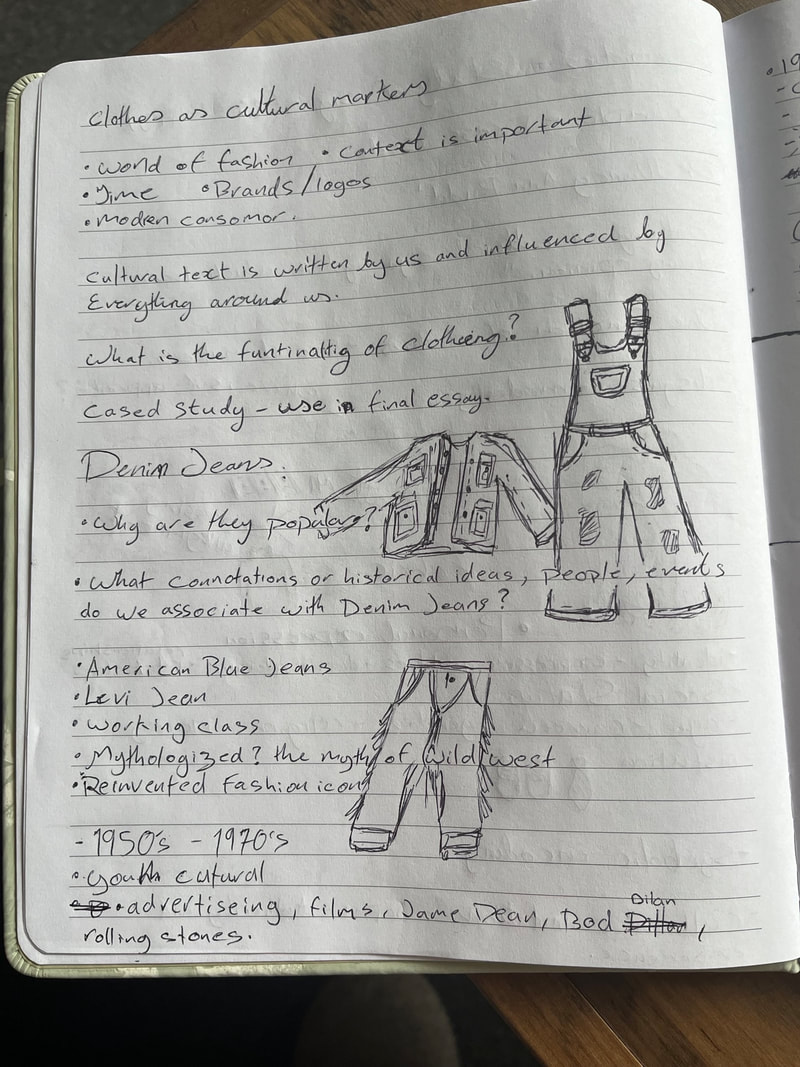 Clothes as cultural markers
• World of fashion • Context is important
• Time • Brands/logos
• Modren consomor.
Cultural text is written by us and influenced by
Everything around us.
What is the funtinaltig of clotheing?
Cased study - use in final essay.
Denim Jeans.
• Why are they popular?
• What connotations or historical ideas, people, events
do we associate with Denim Jeans?
• American Blue Jeans
• Levi Jean
• Working class
• Mythologized? the myth of wild west
• Reinvented fashion icon
- 1950's - 1970's
• youth cutural
• advertiseing, films, Jame Dean, Bod Dilan,
rolling stones.
• 19